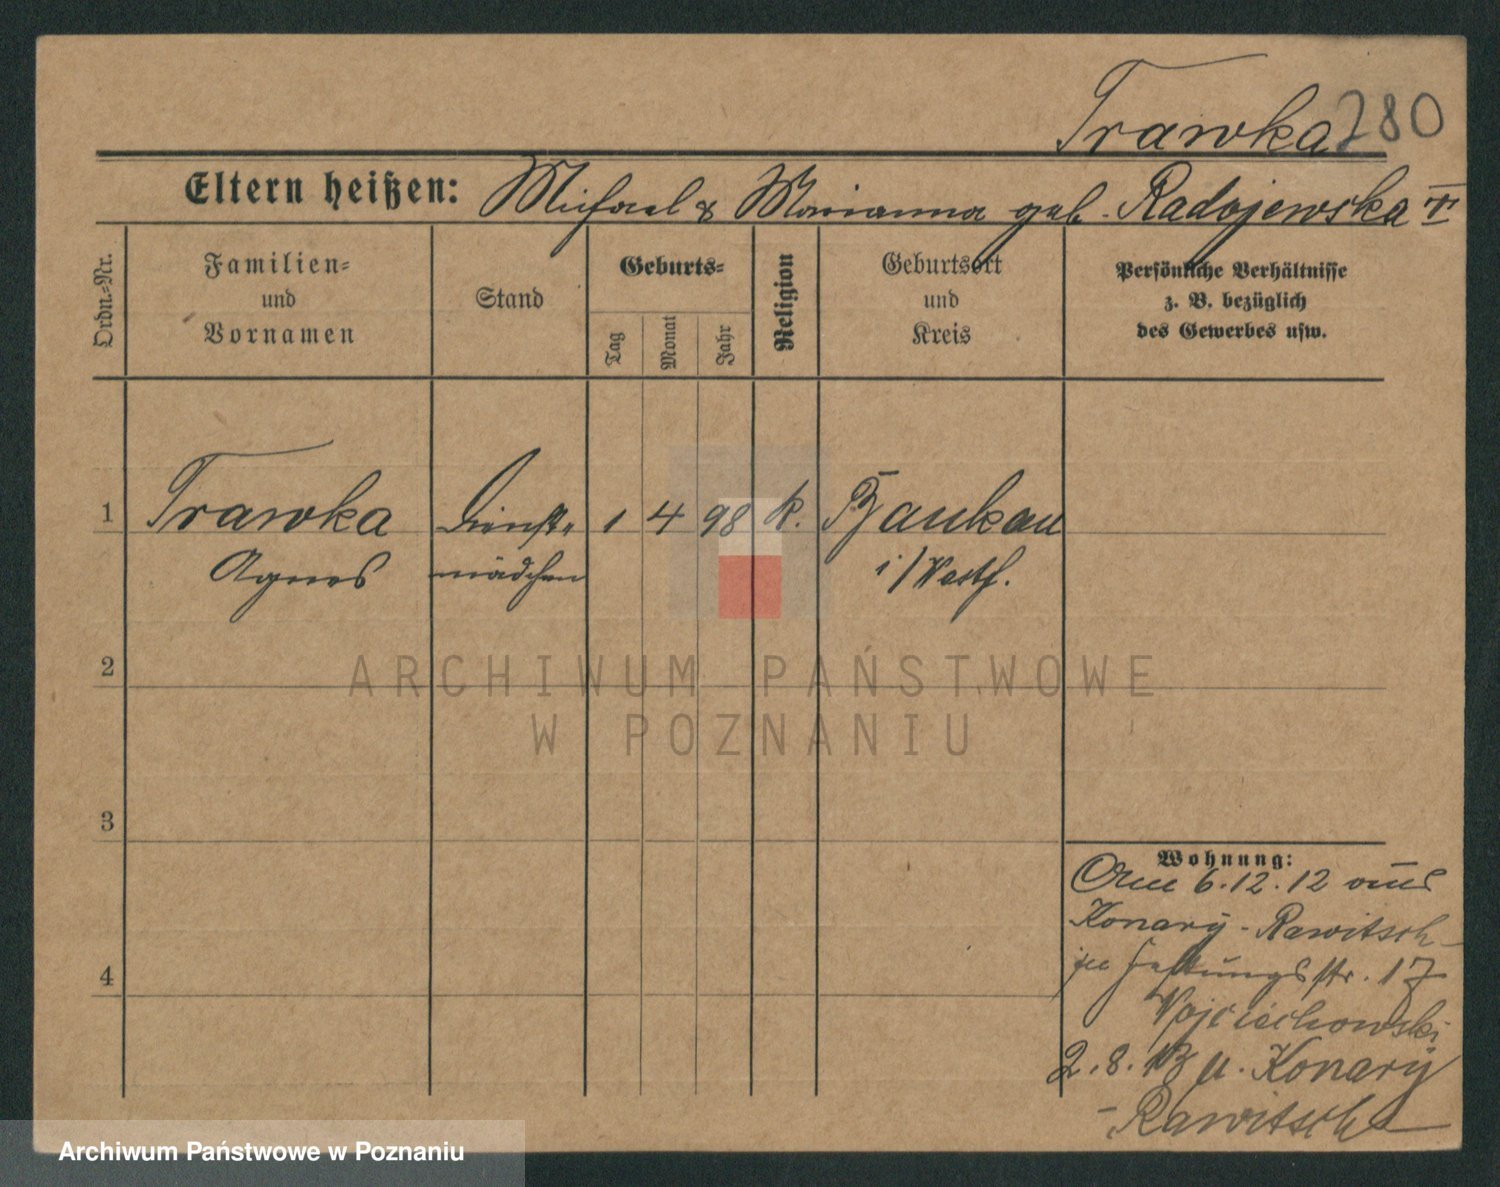 Trawka 280
Eltern heißen: Michael & Marianna geb. Radojewska
Ordn.-Nr.
Familien-
und
Vornamen
Stand
Geburts-
Tag
Monat
Jahr
Religion
Geburtsort
und
Kreis
Persönliche Verhältnisse
z. B. bezüglich
des Gewerbes usw.
1 Trawka Dienst- 1 4 98 k. Baukau
Agnes mädchen i/Westf.
2
ARCHIWUM PAŃSTWOWE
W POZNANIU
3
4
Wohnung:
6.12.12 aus
Konary - Rawitsch
in Festungsstr. 17
Wojciechowski
2.8.13 n. Konary
- Rawitsch
Archiwum Państwowe w Poznaniu